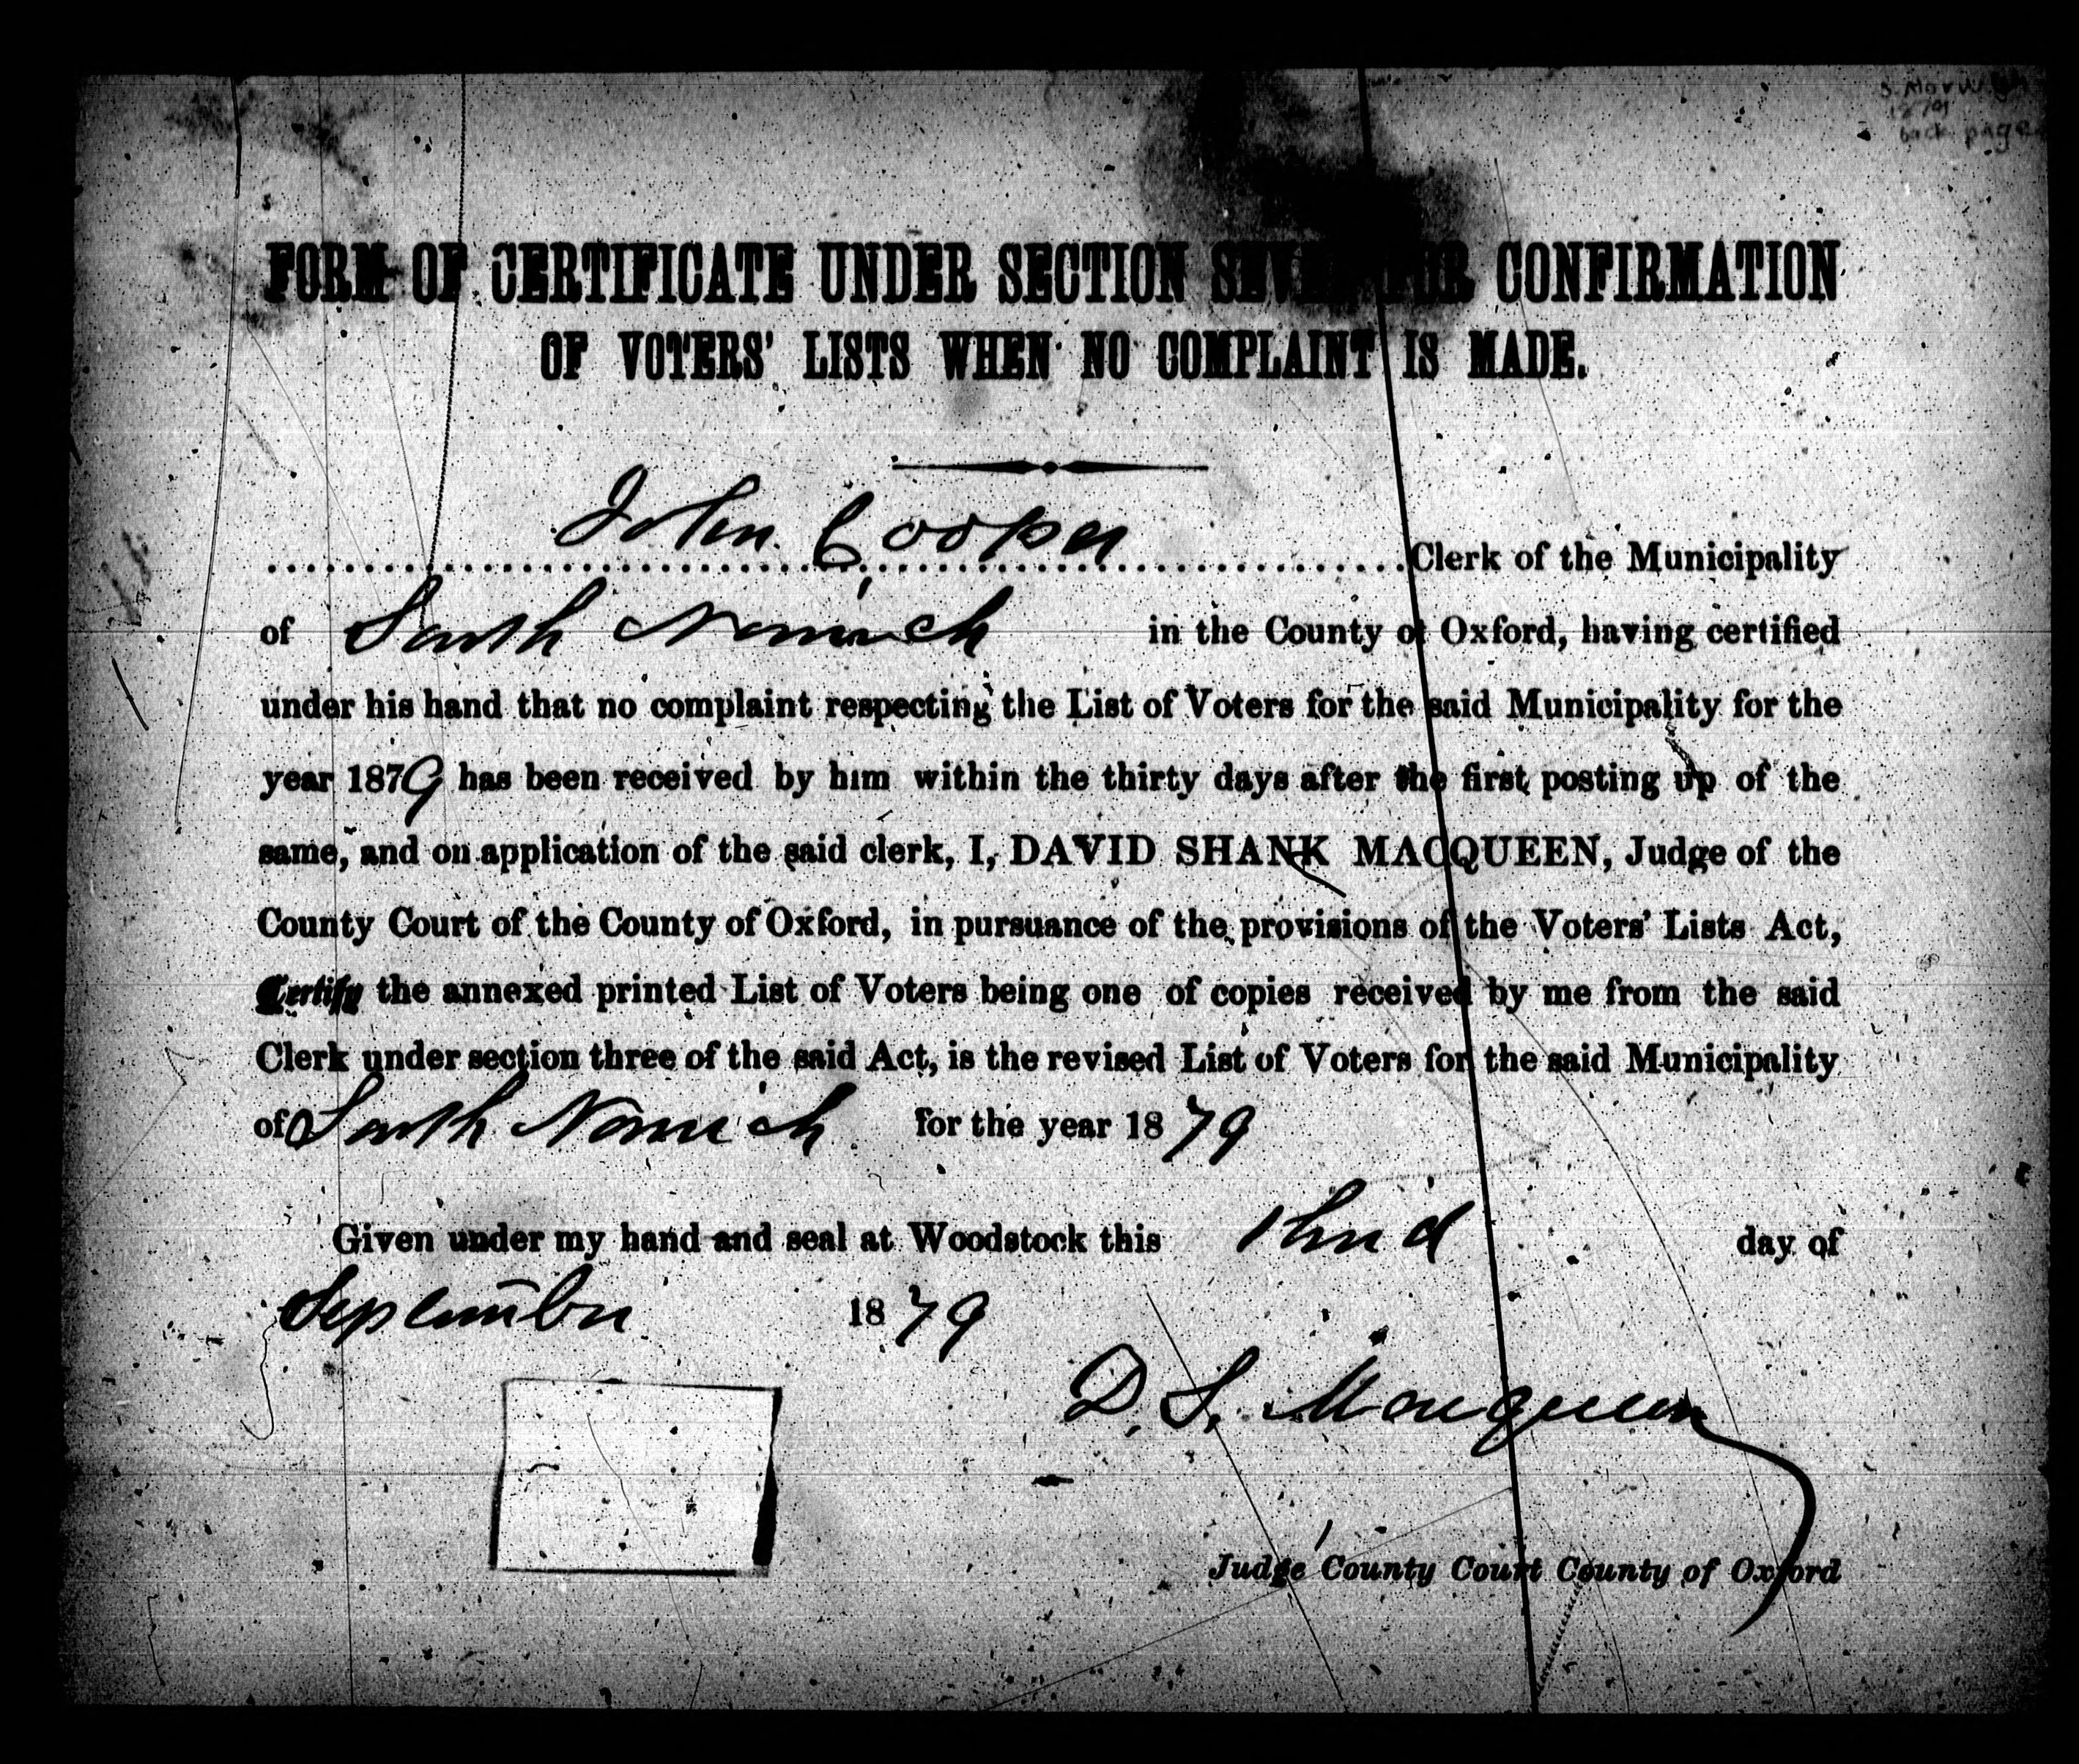 S. Norwich
1879
back page
FORM OF CERTIFICATE UNDER SECTION SEVEN FOR CONFIRMATION
OF VOTERS' LISTS WHEN NO COMPLAINT IS MADE.
John Cooper Clerk of the Municipality
of South Norwich in the County of Oxford, having certified
under his hand that no complaint respecting the List of Voters for the said Municipality for the
year 1879 has been received by him within the thirty days after the first posting up of the
same, and on application of the said clerk, I, DAVID SHANK MACQUEEN, Judge of the
County Court of the County of Oxford, in pursuance of the provisions of the Voters' Lists Act,
Certify the annexed printed List of Voters being one of copies received by me from the said
Clerk under section three of the said Act, is the revised List of Voters for the said Municipality
of South Norwich for the year 1879
Given under my hand and seal at Woodstock this third day of
September 1879
D. S. Macqueen
Judge County Court County of Oxford